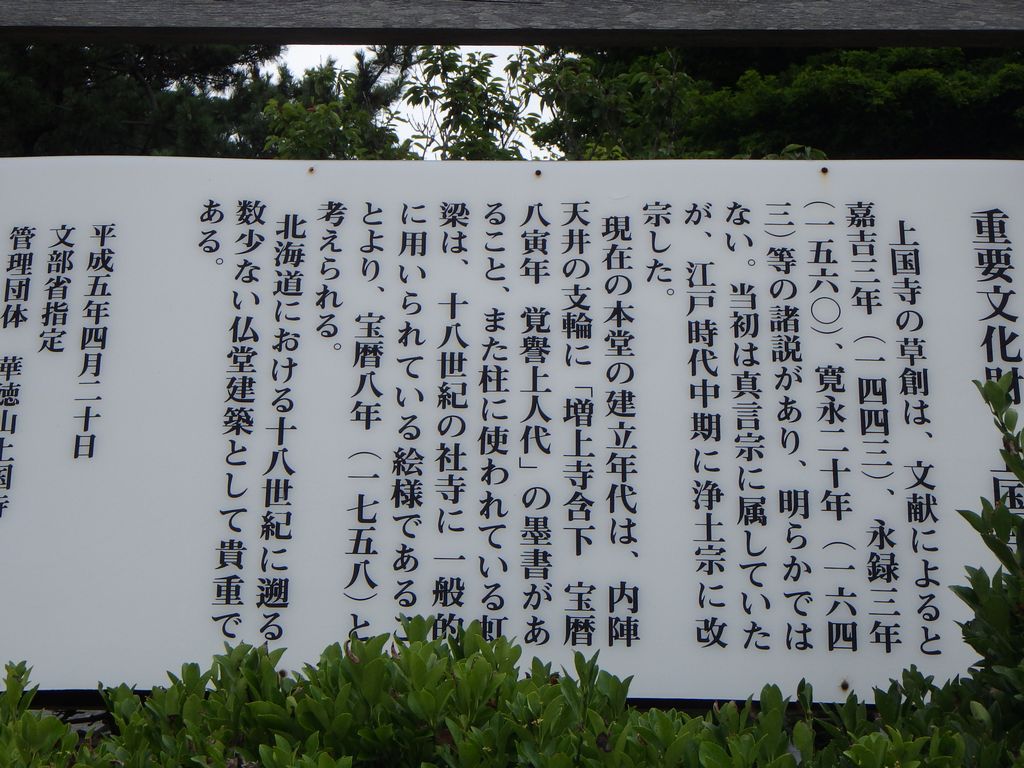 重要文化財 上国寺
上国寺の草創は、文献によると
嘉吉三年（一四四三）、永録三年
（一五六〇）、寛永二十年（一六四
三）等の諸説があり、明らかでは
ない。当初は真言宗に属していた
が、江戸時代中期に浄土宗に改
宗した。
現在の本堂の建立年代は、内陣
天井の支輪に「増上寺含下 宝暦
八寅年 覚譽上人代」の墨書があ
ること、また柱に使われている虹
梁は、十八世紀の社寺に一般的
に用いられている絵様であるこ
とより、宝暦八年（一七五八）と
考えられる。
北海道における十八世紀に遡る
数少ない仏堂建築として貴重で
ある。
平成五年四月二十日
文部省指定
管理団体 華徳山上国寺